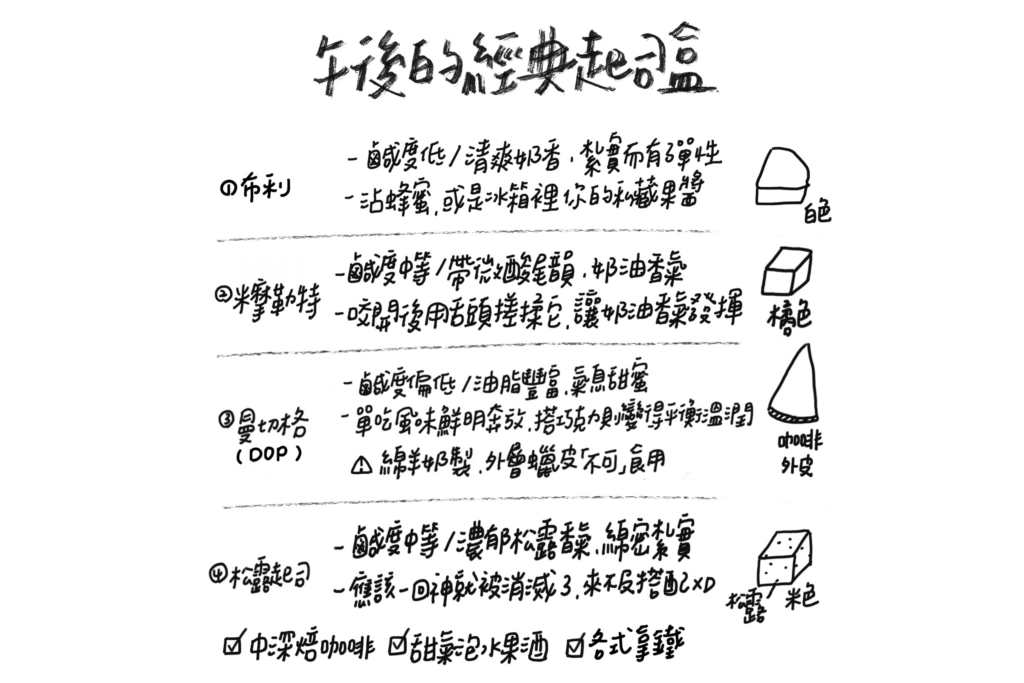 午後的經典起司盒
①布利
- 鹹度低/清爽奶香,紮實而有彈性
- 沾蜂蜜,或是冰箱裡你的私藏果醬
白色
②摩勒特
- 鹹度中等/帶微酸尾韻,奶油香氣
- 咬開後用舌頭搓揉它,讓奶油香氣發揮
橘色
③曼切格
(DOP)
- 鹹度偏低/油脂豐富,氣息甜蜜
- 單吃風味鮮明奔放,搭巧克力則變得平衡溫潤
⚠ 綿羊奶製,外層蠟皮「不可」食用
咖啡
外皮
④松露起司
- 鹹度中等/濃郁松露香氣,綿密紮實
- 應該一回神就被消滅了,來不及搭配XD
松露
米色
☑中深焙咖啡 ☑甜氣泡水果酒 ☑各式拿鐵